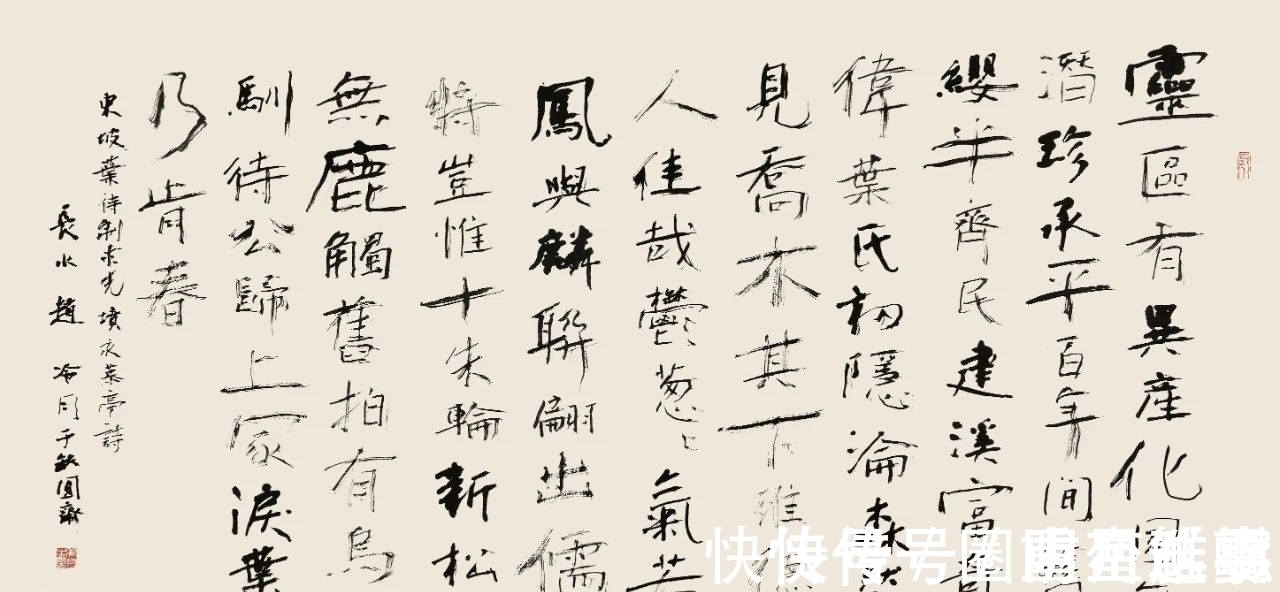 靈區有異産化
潛珍承平百年間
纓半齊民建溪富奇
偉葉氏初隱淪森然
見喬木其下維德
人佳哉鬱葱〻氣若
鳳與麟聯翩出儒
將豈惟十朱輪新松
無鹿觸舊柏有烏
馴待公歸上冢淚葉
乃肯春
東坡葉待制求先墳永慕亭詩
長水趙冷月于缺圓齋